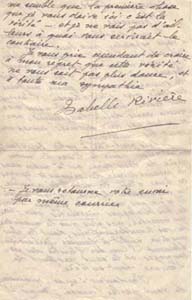 me semble que la première chose
que je vous doive ici c'est la
vérité — et je ne vois pas d'ail-
leurs à quoi vous servirait le
contraire.
Je vous prie cependant de croire
à mon regret que cette vérité
ne vous soit pas plus douce, et
à toute ma sympathie
Isabelle Rivière
— Je vous retourne votre envoi
par même courrier